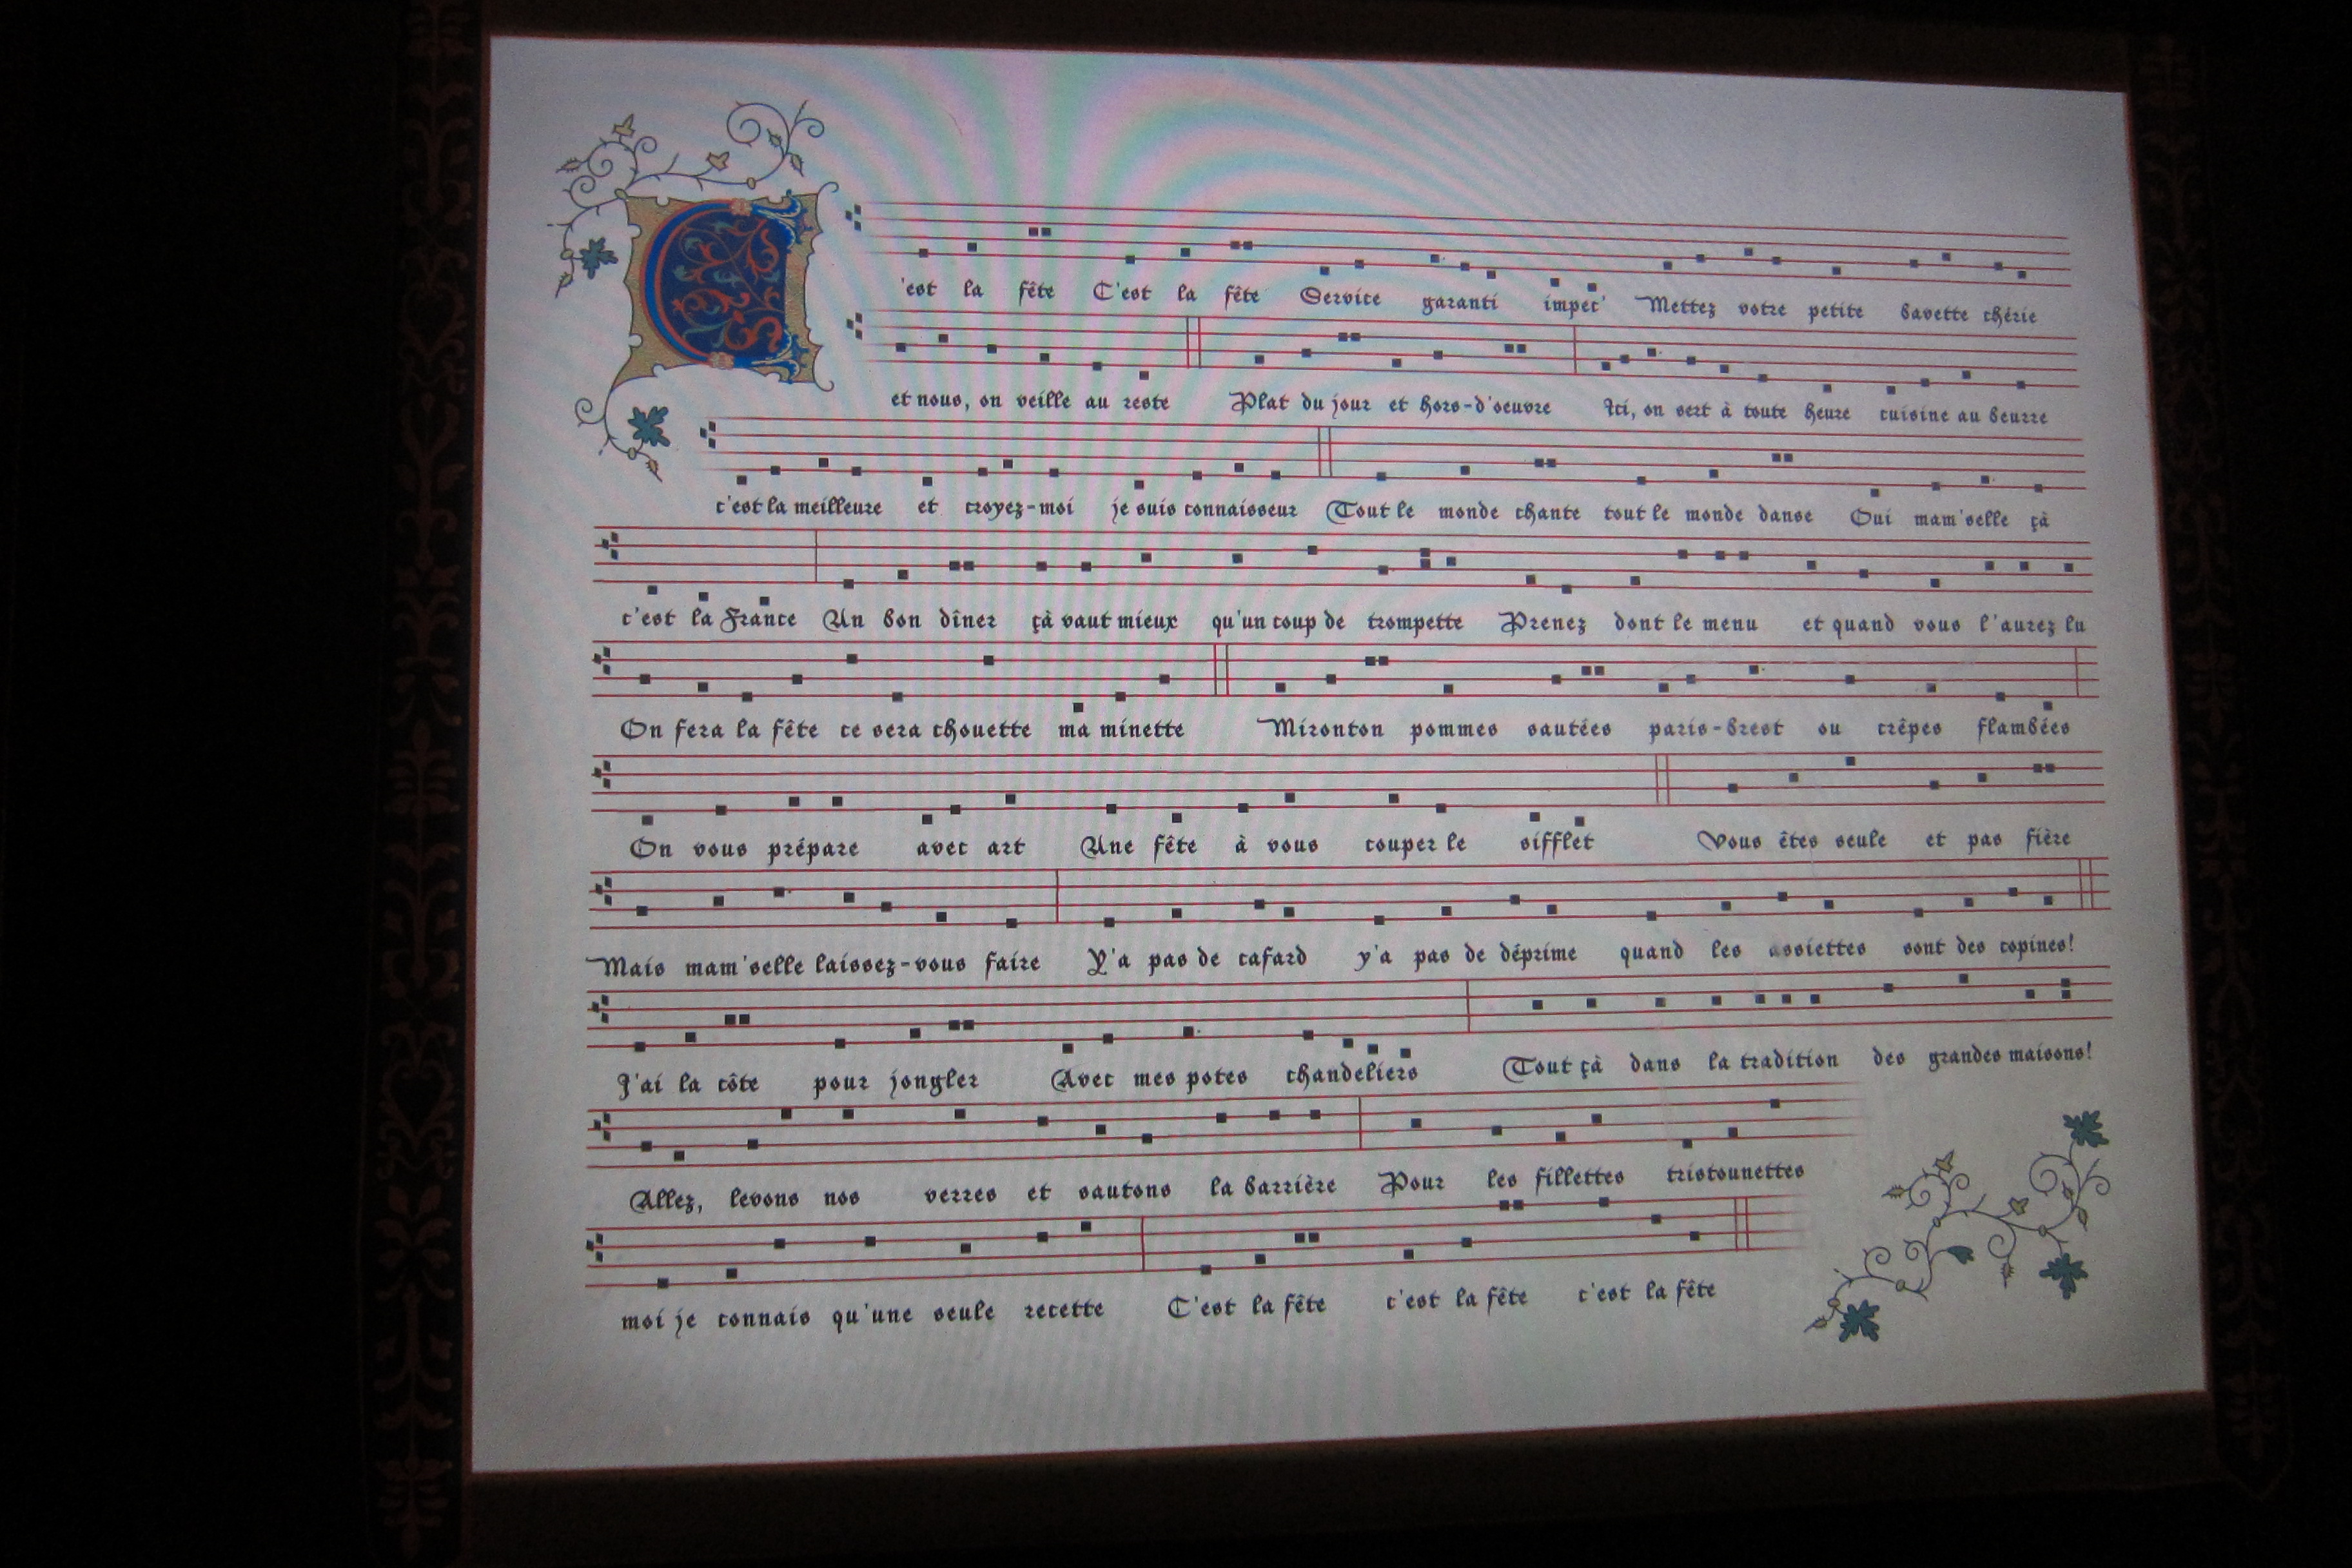 C'est la fête C'est la fête Service garanti impec' Mettez votre petite bavette chérie
et nous, on veille au reste Plat du jour et hors-d'oeuvre Ici, on sert à toute heure cuisine au beurre
c'est la meilleure et croyez-moi je suis connaisseur Tout le monde chante tout le monde danse Oui mam'selle çà
c'est la France Un bon dîner çà vaut mieux qu'un coup de trompette Prenez dont le menu et quand vous l'aurez lu
On fera la fête ce sera chouette ma minette Mironton pommes sautées paris-brest ou crêpes flambées
On vous prépare avec art Une fête à vous couper le sifflet Vous êtes seule et pas fière
Mais mam'selle laissez-vous faire Y'a pas de cafard y'a pas de déprime quand les assiettes sont des copines!
J'ai la côte pour jongler Avec mes potes chandeliers Tout çà dans la tradition des grandes maisons!
Allez, levons nos verres et sautons la barrière Pour les fillettes tristounettes
moi je connais qu'une seule recette C'est la fête c'est la fête c'est la fête